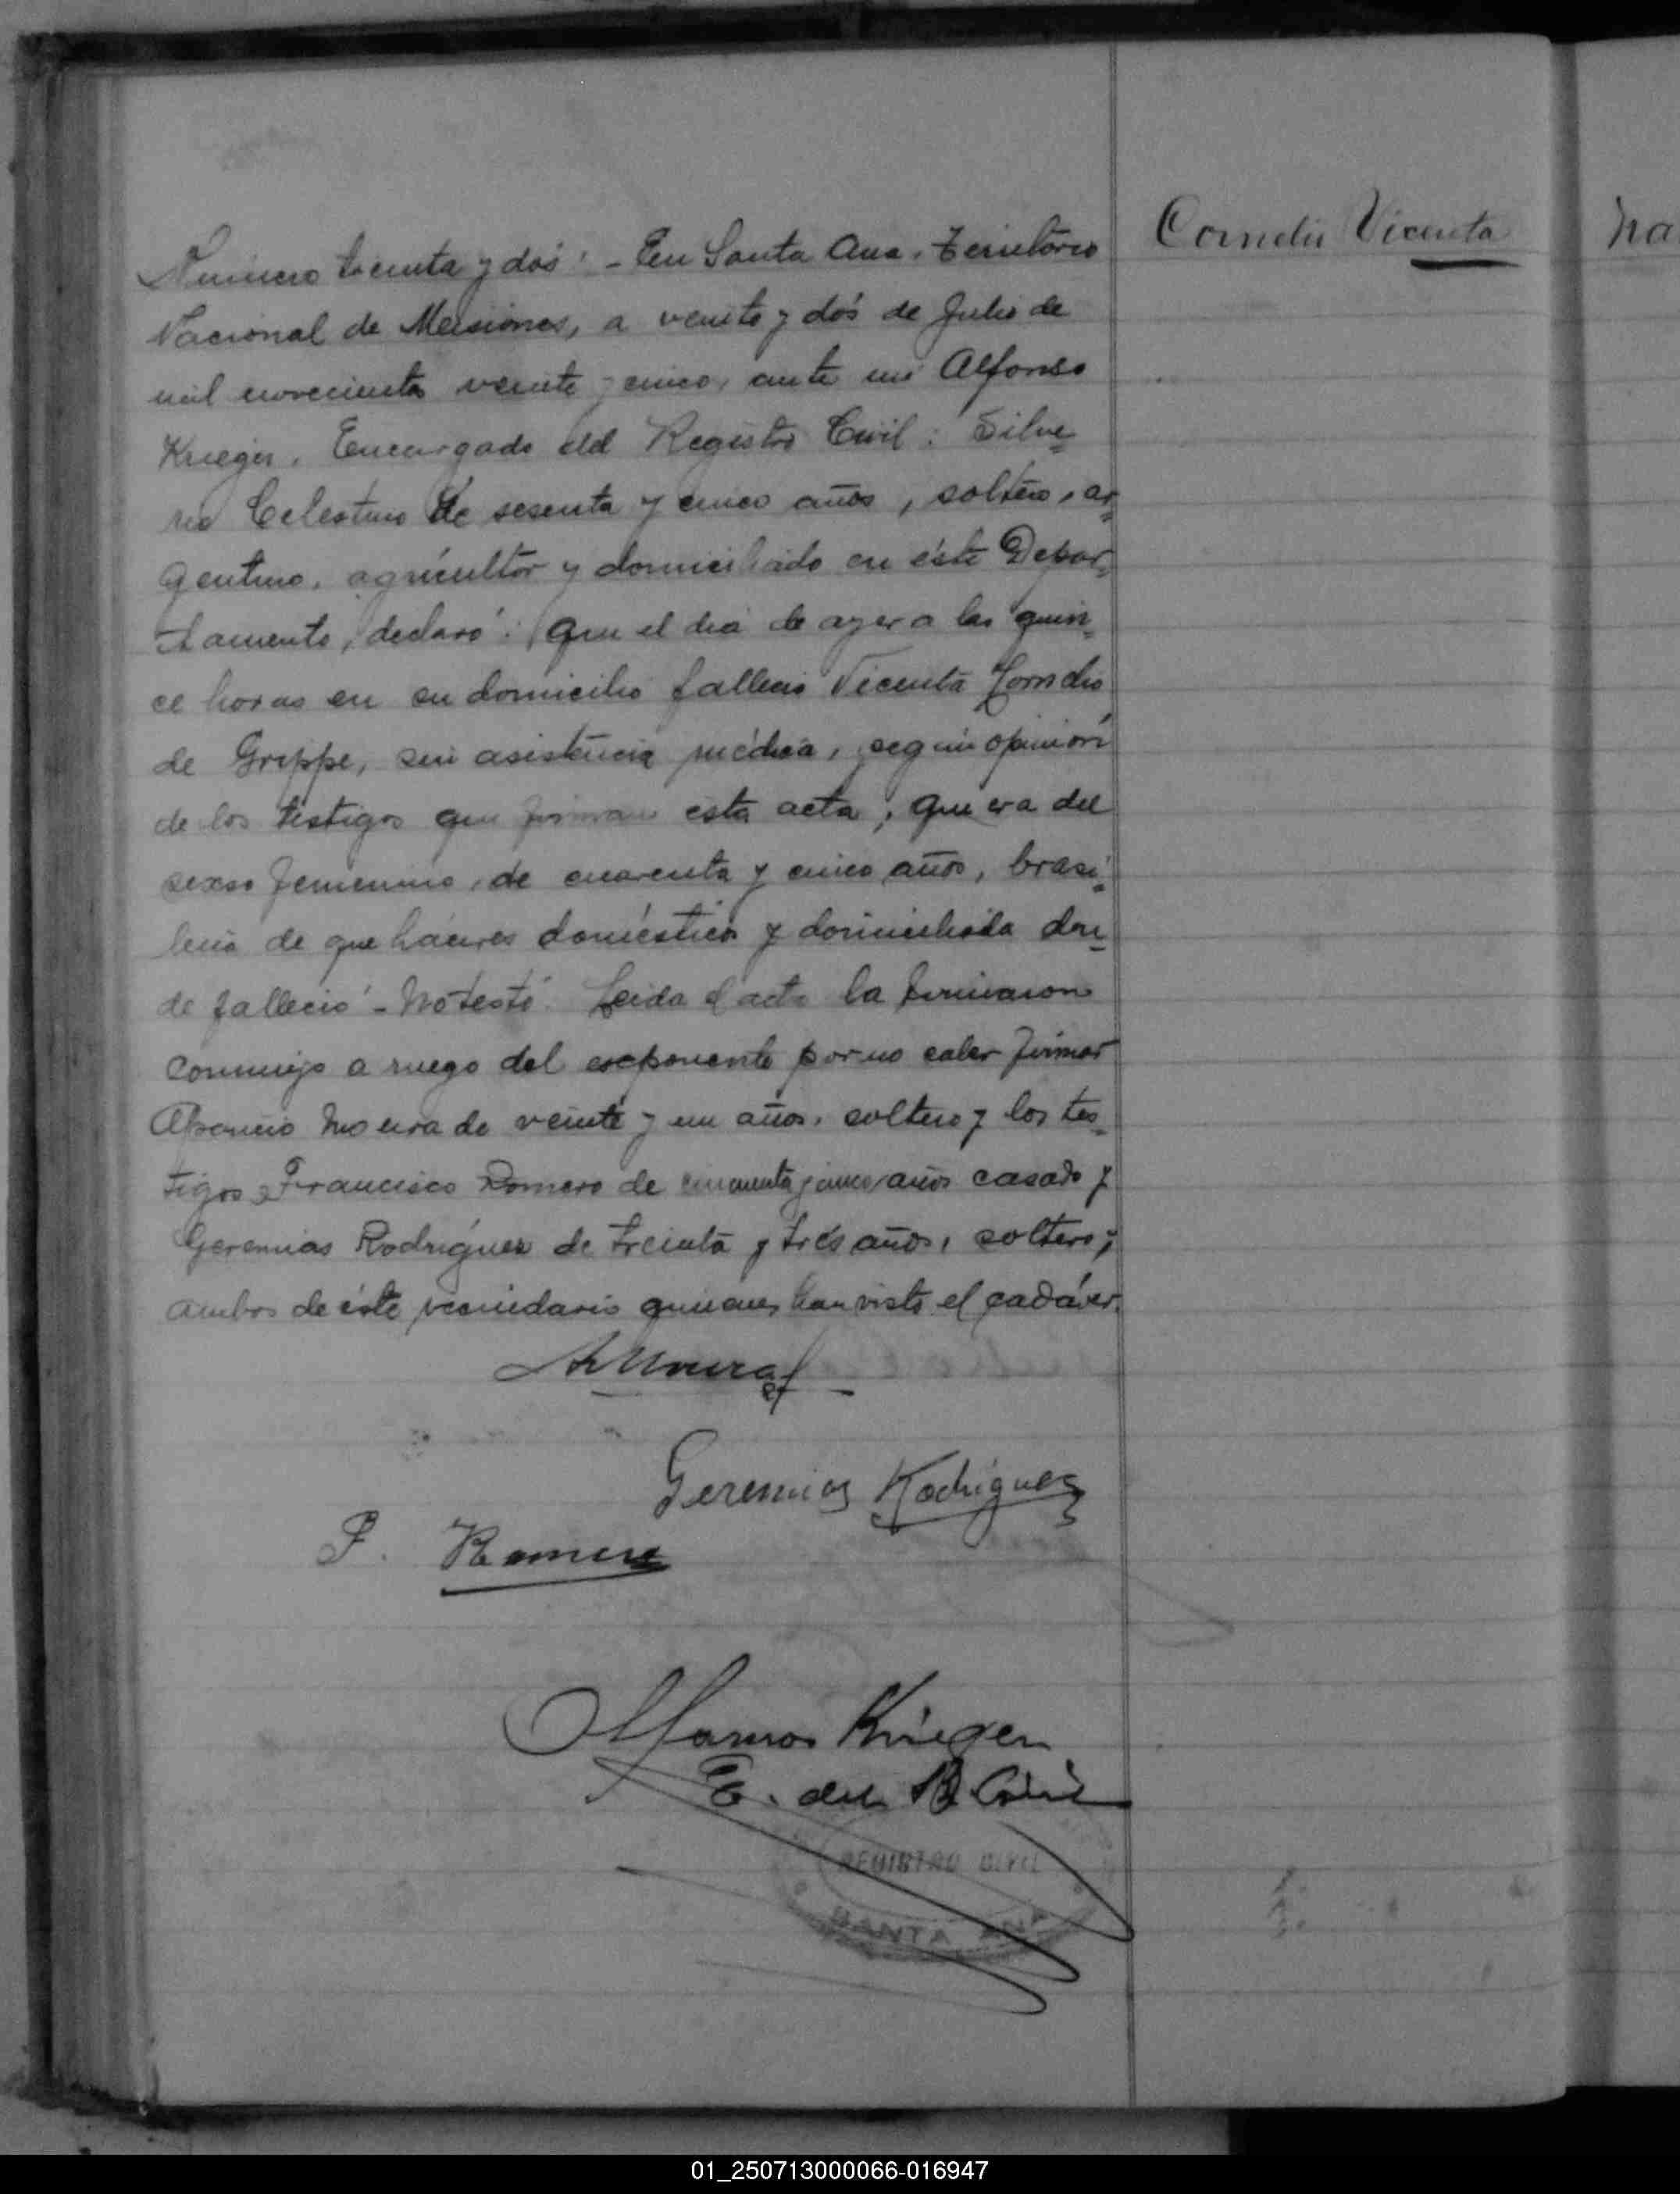 Cornelio Vicenta
Número treinta y dos: - En Santa Ana, Territorio
Nacional de Misiones, a veinte y dós de Julio de
mil novecientos veinte y cinco, ante mi Alfonso
Krieger, Encargado del Registro Civil: Silve=
rio Celestino de sesenta y cinco años, soltero, ar=
gentino, agricultor y domiciliado en éste Depar=
tamento, declaró: Que el dia de ayer a las quin=
ce horas en su domicilio falleció Vicenta Cornelio
de Grippe, sin asistencia médica, según opinión
de los testigos que firman esta acta; que era del
sexso femenino, de cuarenta y cinco años, brasi=
lera de que háceres domésticos y domiciliada don=
de falleció - No testó. Leida el acta la firmaron
conmigo a ruego del esxponente por no saber firmar
Aparicio Moura de veinte y un años, soltero y los tes=
tigos Francisco Romero de cincuenta y cinco años casado y
Geremias Rodríguez de treinta y trés años, soltero;
ambos de éste vecindario quienes han visto el cadáver.
A Moura
Geremias Rodriguez
F. Romero
Alfonso Krieger
E. del R. Civil
REGISTRO CIVIL
SANTA ANA
01_250713000066-016947